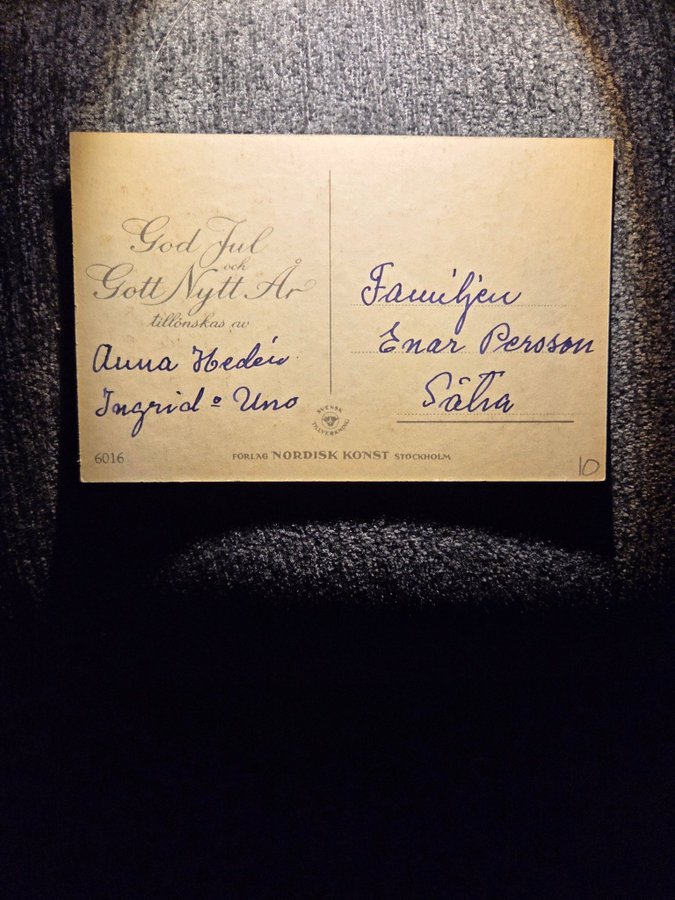 God Jul
och
Gott Nytt År
tillönskas av
Anna Hedén
Ingrid o Uno
6016
SVENSK
TILLVERKNING
FÖRLAG NORDISK KONST STOCKHOLM
Familjen
Enar Persson
Sätra
10